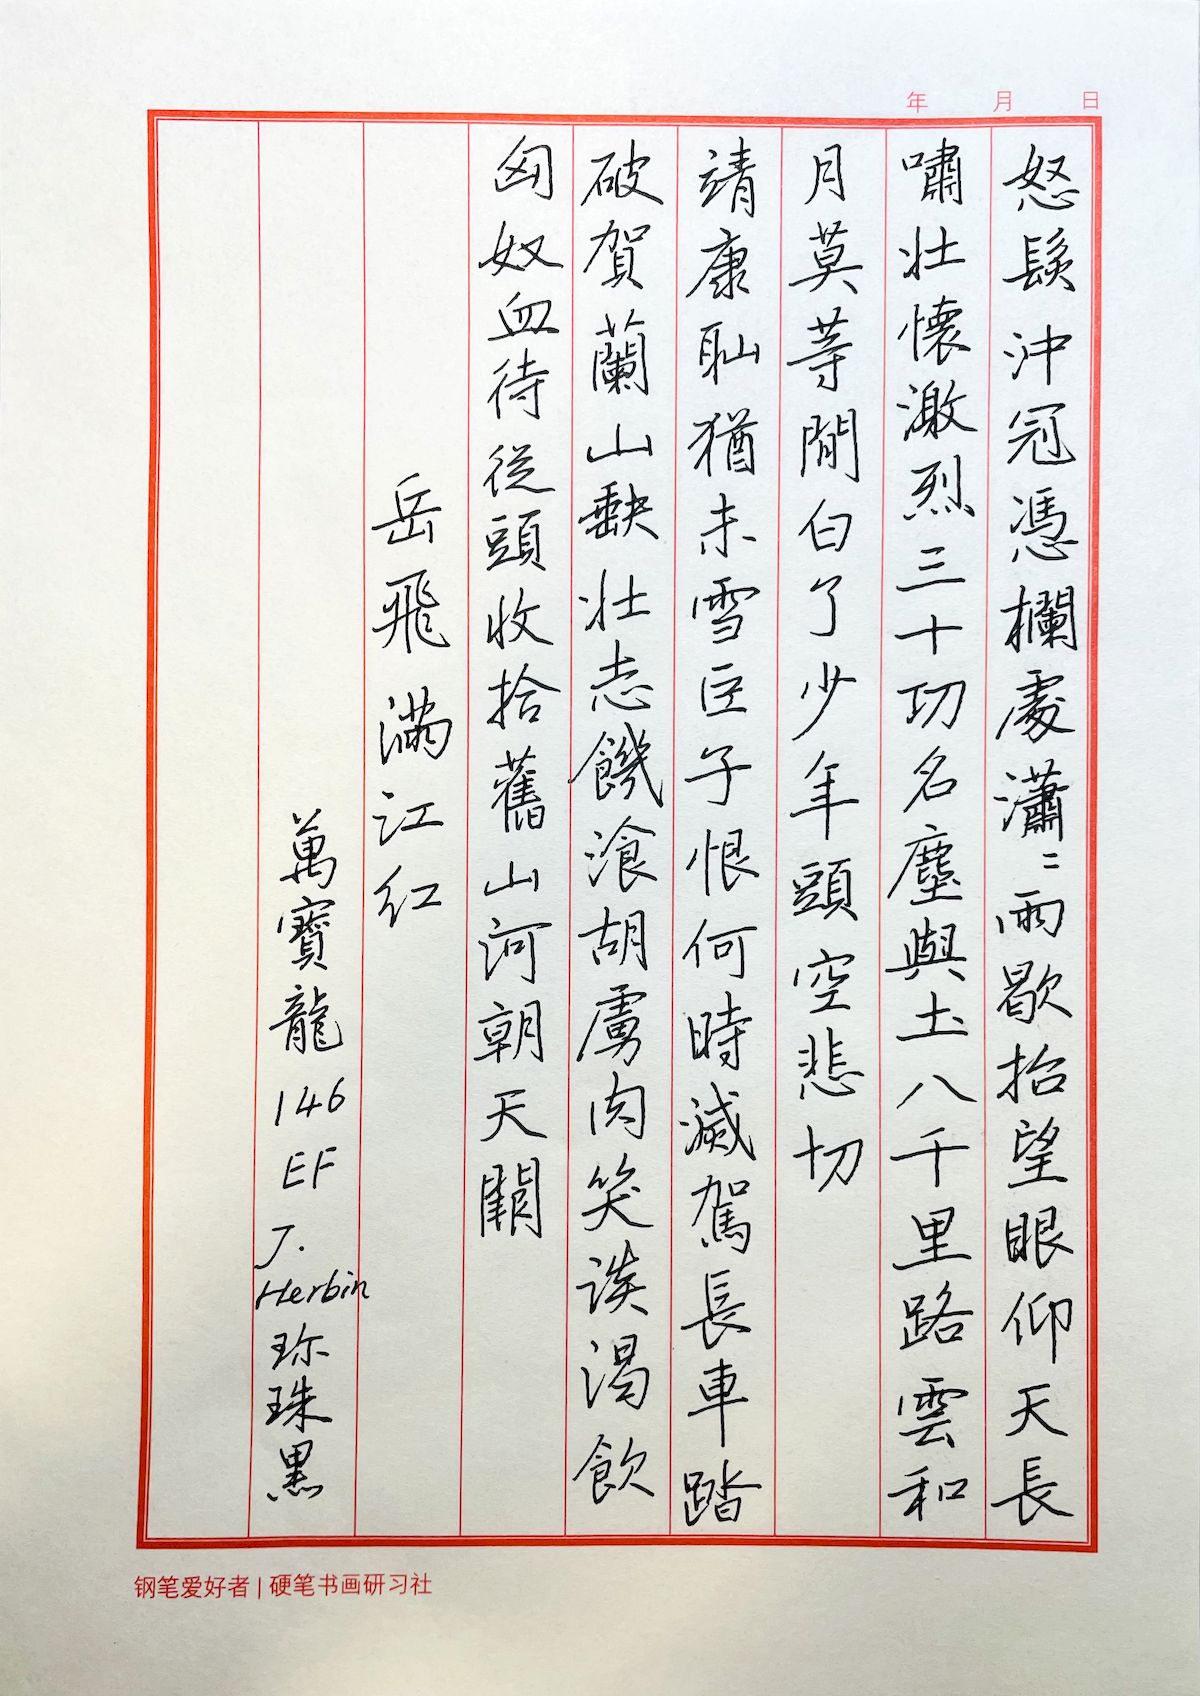 年 月 日
怒髮沖冠憑欄處瀟〻雨歇抬望眼仰天長
嘯壯懷激烈三十功名塵與土八千里路雲和
月莫等閒白了少年頭空悲切
靖康恥猶未雪臣子恨何時滅駕長車踏
破賀蘭山缺壯志飢飡胡虜肉笑談渴飲
匈奴血待從頭收拾舊山河朝天闕
岳飛滿江红
萬寶龍146EF J. Herbin 珍珠黑
钢笔爱好者 | 硬笔书画研习社